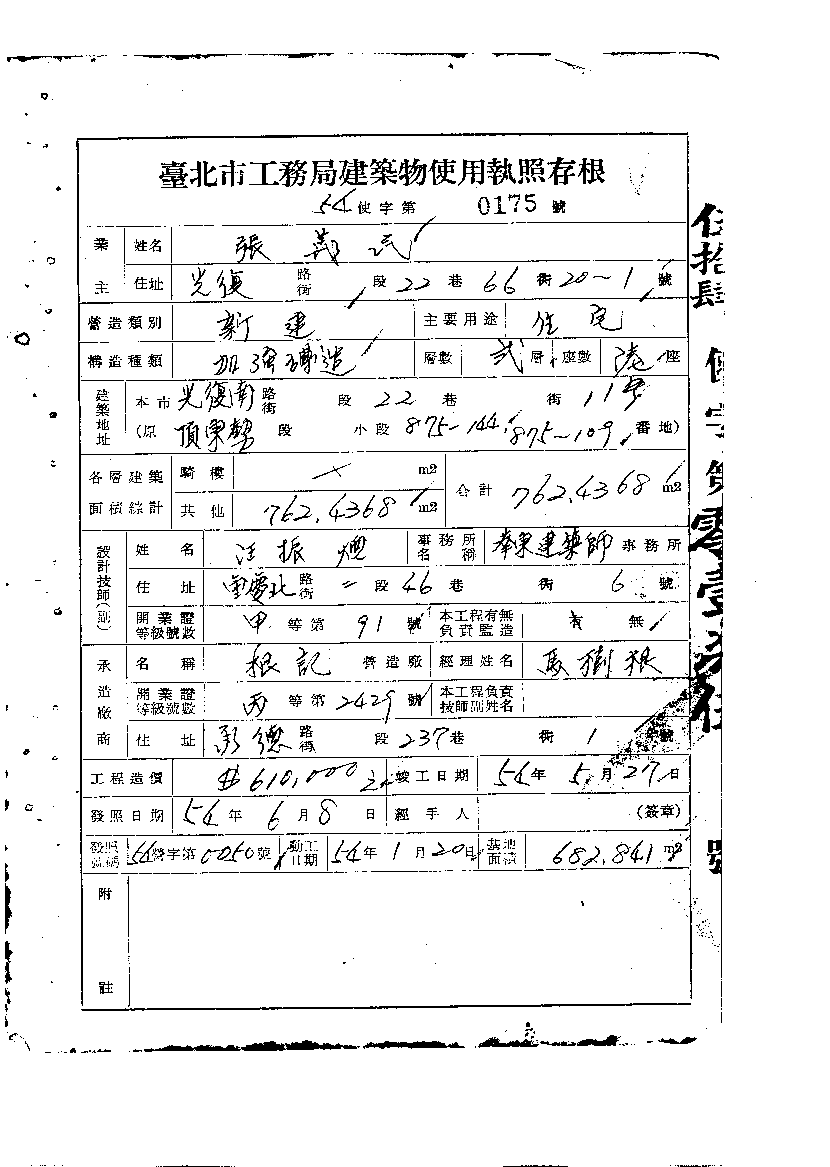 臺北市工務局建築物使用執照存根
54使字第 0175 號
業主 姓名 張義武
住址 光復 路街 段22巷66衖20~1號
營造類別 新建 主要用途 住宅
構造種類 加強磚造 層數 弍層 座數 陸座
建築地址 本市 光復南 路街 段22巷 衖11号
(原 頂東勢 段 小段 875-144,875-109 番地)
各層建築面積綜計 騎樓 × m2 合計 762.4368 m2
共他 762.4368 m2
設計技師(副) 姓名 汪振 事務所名稱 建築師事務所
住址 重慶北 路街 二段46巷 衖6號
開業證等級號數 甲等第91號 本工程有無負責監造 有 無
承造廠商 名稱 根記 營造廠 經理姓名 馬樹根
開業證等級號數 丙等第2429號 本工程負責技師副姓名
住址 彰德 路街 段237巷 衖1號
工程造價 $610,000元 竣工日期 54年5月27日
發照日期 54年6月8日 經手人 (簽章)
發照號碼 54營字第0050號 動工日期 54年1月20日 基地面積 682.841m2
附註
伍拾肆 使字第零壹柒伍 號